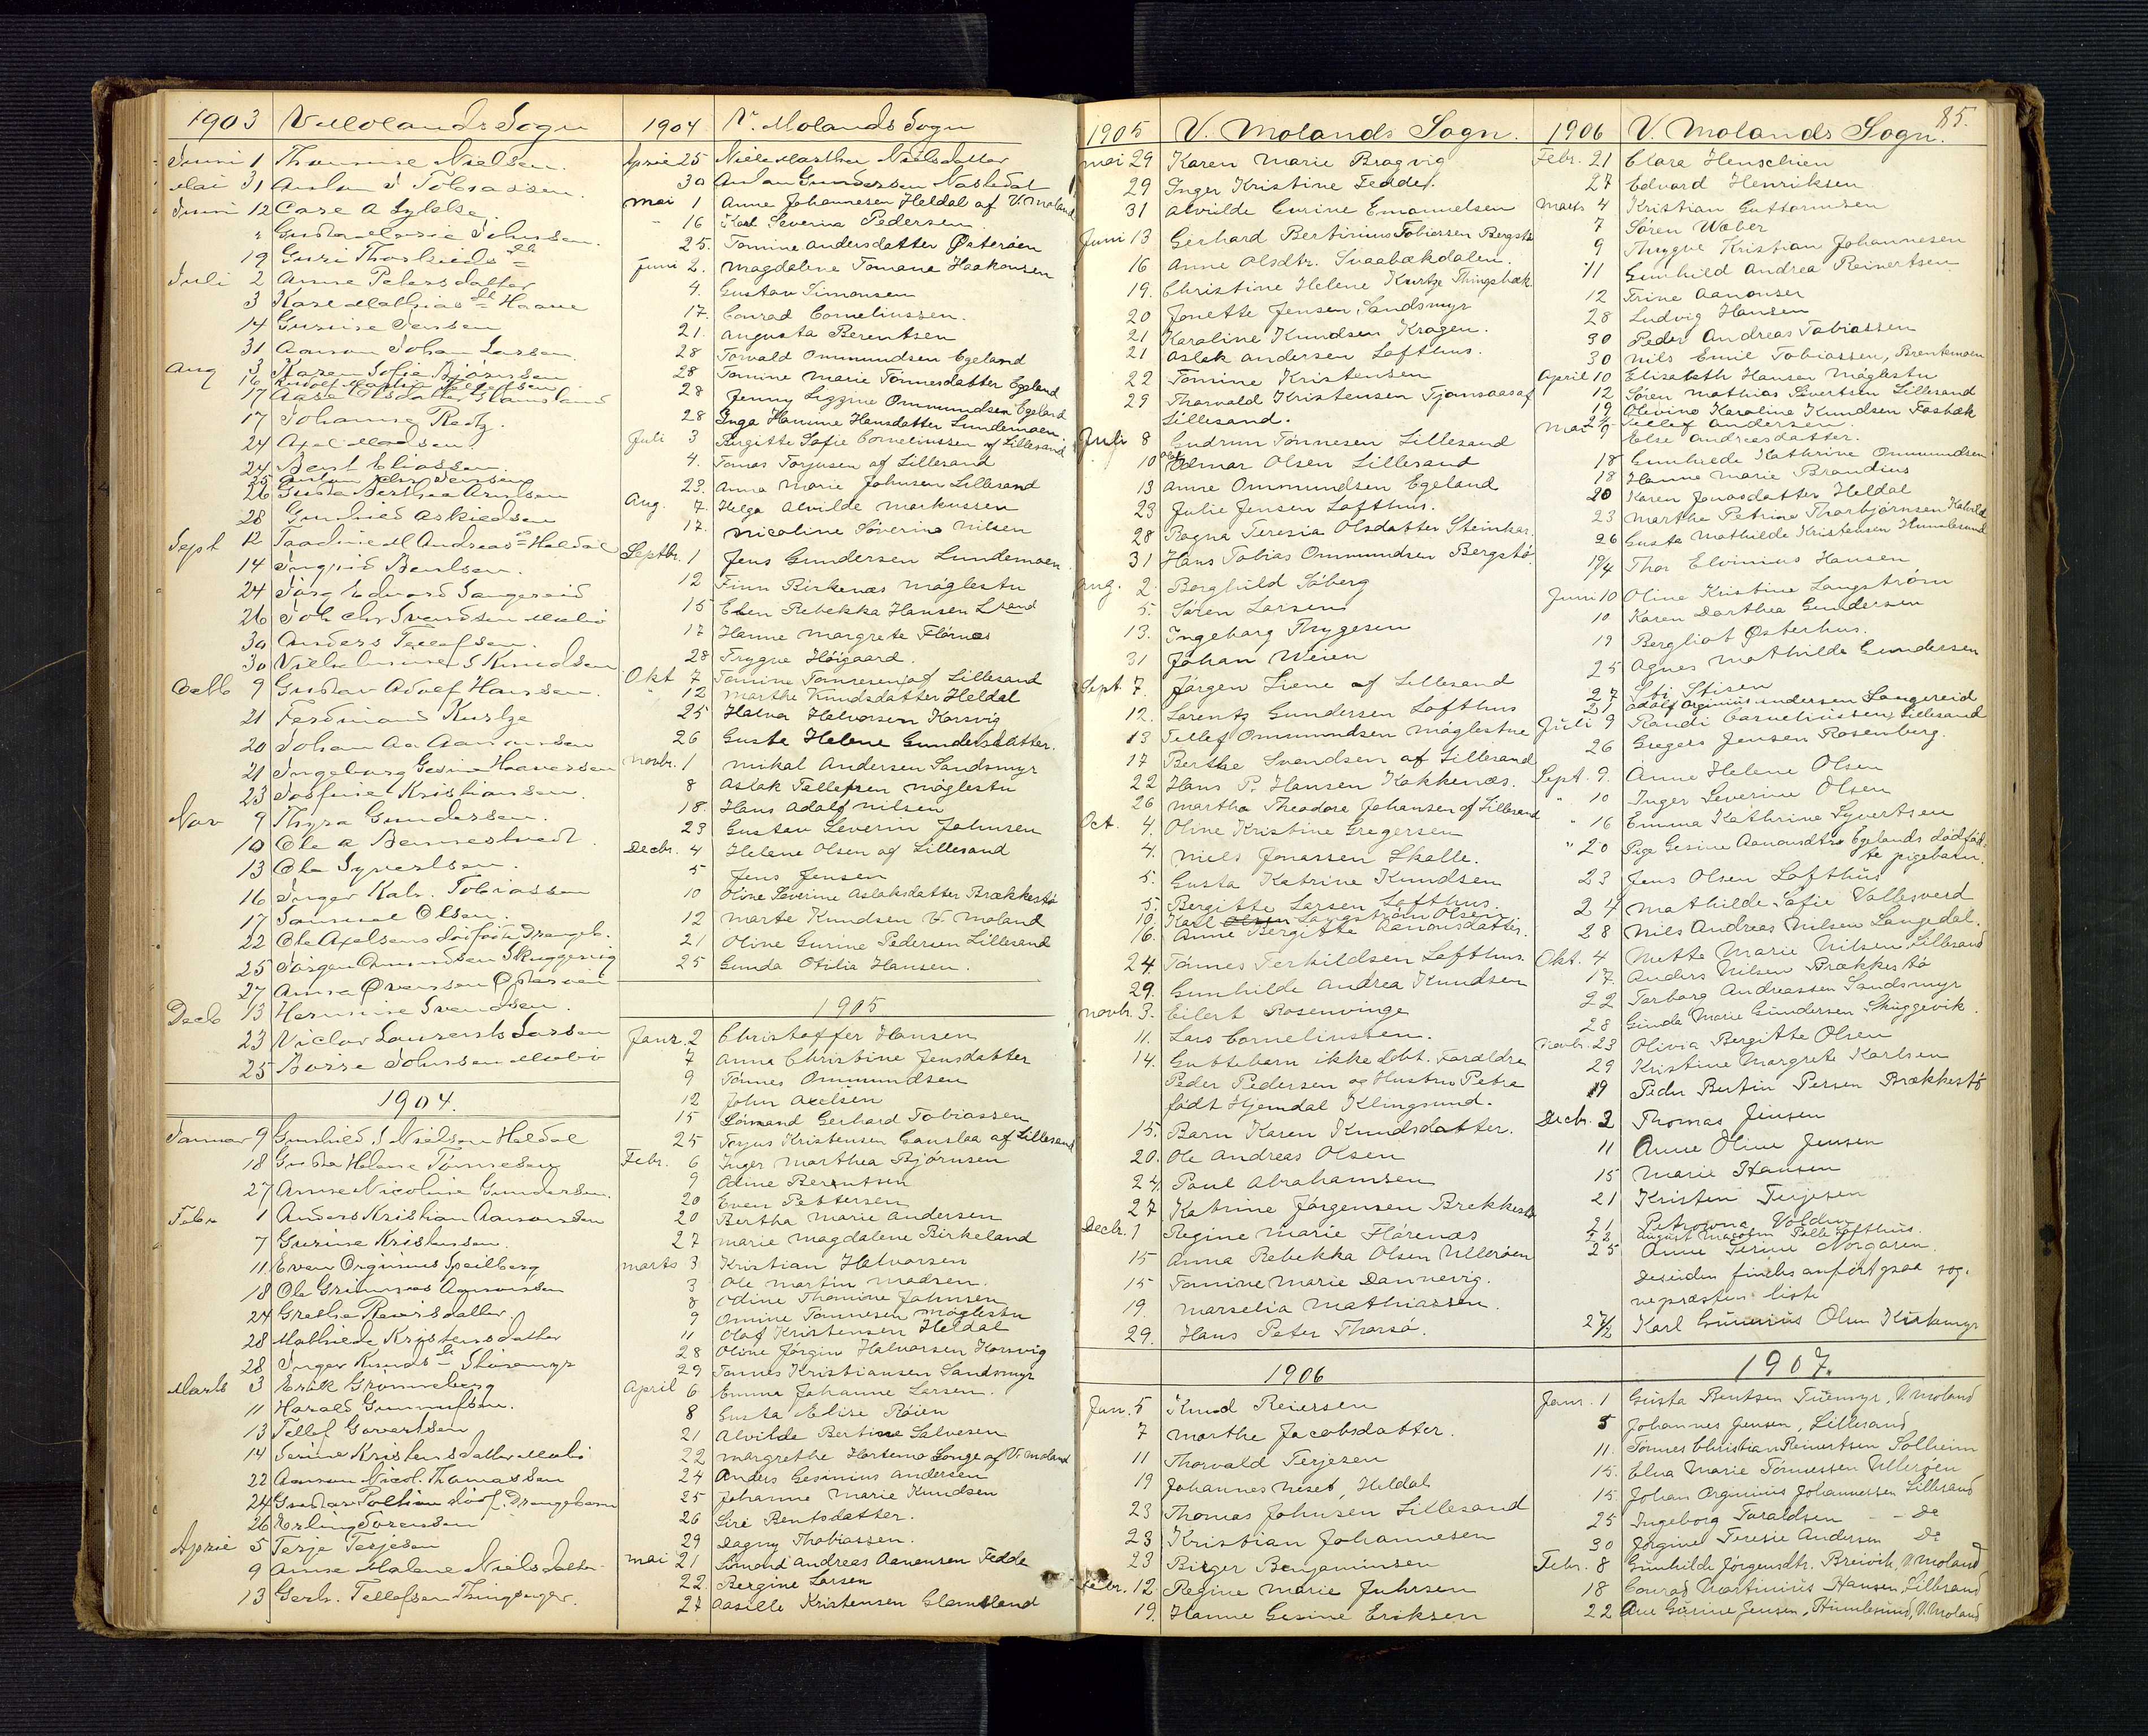 1903 V. Molands Sogn
Juni 1 Thomine Nielsen.
Mai 31 Anton T Tobiassen.
Juni 12 Carl A
" Gusta Marie Johnsen.
19 Guri
Juli 2 Anne Petersdatter
3 Kare Mathias Haave
14 Gurine Jensen
31 Aanon Johan Larsen.
Aug 3 Karen Sofie Bjørnsen
16 Rudolf Martin Tellefsen
17 Aase Olsdatter Glamsland
17 Johanne Redtz.
24 Axel Madsen.
24 Berit Eliassen.
25 Anton Johs Jensen
26 Gusta Berthea Arnesen
28 Gunhild Aslaksen
Sept 12 M Andreas Heldal
14 Ingrid Bentsen.
24 Jørg Edvard Langereid
26 Joh Chr Svendsen
30 Anders Tellefsen.
30 Vilhelmine S Knudsen
Octb 9 Gustav Adolf Hansen.
21 Ferdinand Kurtze
20 Johan Aa Aanonsen
21 Ingeborg Gesine Halvorsen
23 Josefine Kristiansen.
Nov 9 Thyra Gundersen.
10 Ole A
13 Ole Syvertsen.
16 Inger Kath. Tobiassen
17 Samuel Olsen.
22 Ole Axelsens dødfødte Drengeb.
25 Jørgen Ommundsen Skuggevig
27 Anna Evensen Østerøen
Decb 13 Hermine Svendsen.
23 Victor Laurents Larsen
25 Børre Johnsen
1904.
Januar 9 Gunhild S Nielsen Heldal
18 Gusta Helene Tønnesen
27 Anne Nicoline Gundersen.
Febr 1 Anders Kristian Aanonsen
7 Gurine Kristensen.
11 Even Orginius Speilberg
18 Ole Grimnæs Aanonsen
24 Grethe Reiersdatter.
28 Mathilde Kristensdatter
28 Inger Knuds
Marts 3 Erik Grønneberg
11 Harald Gunnufsen.
13 Tellef Govertsen
14 Terine Kristensdatter
22 Aanon Nicol. Thomassen
24 Gustav dødf. Drengebarn
26 Erling Sørensen
April 5 Terje Terjesen
9 Anne Malene Nielsdatter
13 Gerh. Tellefsen
1904 V. Molands Sogn
April 25 Niels Marthea Nielsdatter
30 Anton Gundersen Naskedal
Mai 1 Anne Johannesen Heldal af V. Moland
" 16 Karl Severin Pedersen
25. Tomine Andersdatter Østerøen
Juni 2. Magdalene Tomane Haakonsen
4. Gustav Simonsen
17. Conrad Corneliussen.
21. Augusta Berentsen
28 Torvald Ommundsen Egeland
28 Tomine Marie Tønnesdatter Egeland
28 Jenny Ligzine Ommundsen Egeland
28 Inga Hanine Hansdatter Lundemoen.
Juli 3 Birgitte Sofie Corneliussen af Lillesand
4. Tomas Torjusen af Lillesand
23. Anna Marie Johnsen Lillesand
Aug. 7. Helga Alvilde Markussen
17. Nicoline Søverine Nilsen
Septbr. 1 Jens Gundersen Lundemoen.
12 Finn Birkenæs Møglestu
15 Ellen Rebekka Hansen L.sand
17 Hanne Margrete Flørnæs
28 Trygve Høigaard.
Okt 7 Tomine Tomresen af Lillesand
" 12 Marthe Knudsdatter Heldal
25 Halvor Halvorsen Korsvig
26 Guste Helene Gundersdatter.
Novbr. 1 Mikal Andersen Sandsmyr
8 Aslak Tellefsen Møglestu
18. Hans Adolf Nilsen
23 Gustav Severin Johnsen
Decbr. 4 Helene Olsen af Lillesand
5 Jens Jensen
10 Oline Severine Aslaksdatter Brækkestø
12 Marte Knudsen V. Moland
21 Oline Gurine Pedersen Lillesand
25 Gunda Otilia Hansen.
1905
Janr. 2 Christoffer Hansen
7 Anna Christine Jensdatter
9 Tønnes Ommundsen
12 John Axelsen
15 Lørmand Gerhard Tobiassen
25 Torjus Kristensen Causlaa af Lillesand
Febr. 6 Inger Marthea Bjørnsen
9 Odine Berentsen
20 Even Pettersen
20 Bertha Marie Andersen
27 Marie Magdalene Birkeland
Marts 3 Kristian Halvorsen
3 Ole Martin Madsen.
8 Odine Thomine Johnsen
9 Omine Tønnesen Møglestu
11 Olaf Kristensen Heldal
28 Oline Jørgine Halvorsen Korsvig
29 Tønnes Kristiansen Sandsmyr
April 6 Emma Johanne Larsen.
8 Gusta Elise Røien
21 Alvilde Bertine Salvesen
22 Margrethe Hortemo Longe af V. Moland
24 Anders Gesinius Andersen
25 Johanne Marie Knudsen
26 Siri Bentsdatter.
29 Dagny Thobiassen.
Mai 21 Simond Andreas Aanensen Fedde
22. Bergine Larsen
27 Aasille Kristensen Glamsland
1905 V. Molands Sogn.
Mai 29 Karen Marie Bragvig
29 Inger Kristine Fedde.
31 Alvilde Gurine Emanuelsen
Juni 13 Gerhard Bertinius Tobiassen Bergstø
16 Anne Olsdtr. Svaabækdalen.
19. Christine Helene Kurtze Thingsbæk
20 Jonette Jensen, Sandsmyr
21 Karoline Knudsen Kragen.
21 Aslak Andersen Lofthus.
22 Tomine Kristensen
29 Thorvald Kristensen Tjønsaas af
Lillesand.
Juli 8 Gudrun Tønnesen Lillesand
10 Odmar Olsen Lillesand
13 Anne Ommundsen Egeland
23 Julie Jensen Lofthus.
28 Ragna Teresia Olsdatter Steinkar.
31 Hans Tobias Ommundsen Bergstø.
Aug. 2. Borghild Søberg
5. Søren Larsen
13. Ingeborg Thygesen
31 Johan Weien
Sept. 7. Jørgen Liene af Lillesand
12. Lorents Gundersen Lofthus
13 Tellef Ommundsen Møglestue
17 Berthe Svendsen af Lillesand
22 Hans P. Hansen Kokkenæs.
26 Martha Theodore Johansen af Lillesand
Oct. 4. Oline Kristine Gregersen
4. Niels Jonassen Skalle.
5. Gusta Katrine Knudsen
5. Bergitte Larsen Lofthus.
10. Karl Olsen Langstrøm Olsen
16. Anne Bergitte Aanonsdatter.
24 Tønnes Terkildsen Lofthus.
29. Gunhilde Andrea Knudsen
Novbr. 3. Eilert Rosenvinge
11. Lars Corneliussen.
14. Guttebarn ikke døbt. Forældre
Peder Pedersen og Hustru Petra
født Hjemdal Klingsund.
15. Barn Karen Knudsdatter.
20. Ole Andreas Olsen
24. Paul Abrahamsen
27 Katrine Jørgensen Brekkestø
Decbr. 1 Regine Marie Flørenæs
15 Anna Rebekka Olsen Ullerøen
15 Tomine Marie Dannevig.
19. Marselia Mathiassen.
29. Hans Peter Thorsø.
1906
Jan. 5 Knud Reiersen
7 Marthe Jacobsdatter.
11 Thorvald Terjesen
19 Johannes Neset, Heldal
23 Thomas Johnsen Lillesand
23 Kristian Johannesen
23 Birger Benjaminsen
Febr. 12 Regine Marie Juhrsen
19. Hanne Gesine Eriksen
85.
1906 V. Molands Sogn.
Febr. 21 Clara Henschien
27 Edvard Henriksen
Marts 4 Kristian Guttormsen
7 Søren Wæber
9 Thrygve Kristian Johannesen
11 Gunhild Andrea Reinertsen
12 Trine Aanonsen
28 Ludvig Hansen
30 Peder Andreas Tobiassen
30 Nils Emil Tobiassen, Brentemoen
April 10 Elisabeth Hansen Møglestu
12 Søren Mathias Severtsen Lillesand
19 Olevine Karoline Knudsen Fosbæk
24 Tellef Andersen.
Mai 9 Else Andreasdatter.
18 Gunhilde Kathrine Ommundsen
18 Hanne Marie Brandius
20 Karen Jonasdatter Heldal
23 Marthe Petrine Thorbjørnsen
26 Gusta Mathilde Kristensen Humlesund
19/4 Thor Elvinius Hansen
Juni 10 Oline Kristine Langstrøm
10 Karen Dorthea Gundersen
19 Bergliot Østerhus.
25 Agnes Mathilde Gundersen
27 Siri Stisen
21 Adolf Orginius Andersen Langereid
Juli 9 Randi Corneliussen, Lillesand
26 Gregers Jensen Rosenberg.
Sept. 9. Anne Helene Olsen
" 10 Inger Severine Olsen
" 16 Emma Kathrine Syvertsen
" 20 Pige Gesine Aanonsdtr. Egelands dødfød-
te pigebarn.
23 Jens Olsen Lofthus
24 Mathilde Sofie Vallesverd
28 Nils Andreas Nilsen Langedal.
Okt. 4 Mette Marie Nilsen, Lillesand
17. Anders Nilsen Brækkestø
22 Torborg Andreassen Sandsmyr
28 Ginda Marie Gundersen Skuggevik.
Novbr. 23 Olivia Bergitte Olsen
29 Kristine Margrete Karlsen
19 Peder Bertin Persen Brækkestø
Decbr. 2 Thomas Jensen
11 Anne Oline Jensen
15 Marie Hansen
21 Kristen Terjesen
21 Petrowna Volden
22 August Magdton Palle Lofthus.
25 Anne Terine Norgaren.
Desuden findes anført paa sog-
nepræstens liste
27/2 Karl Gunerius Olsen Kirkemyr
1907.
Janr. 1 Gusta Bentsen Tuemyr, V. Moland
5 Johannes Jensen, Lillesand
11. Tønnes Christian Reinertsen Solheim
15. Elna Marie Tønnessen Ullerøen
15 Johan Orginius Johannessen Lillesand
25 Ingeborg Taraldsen - - De
30 Jørgine Teresie Andersen De
Febr. 8 Gunhilde Jørgensdtr. Breivik, V. Moland
18 Conrad Martinius Hansen, Lillesand
22 Ane Gurine Jensen, Humlesund, V. Moland